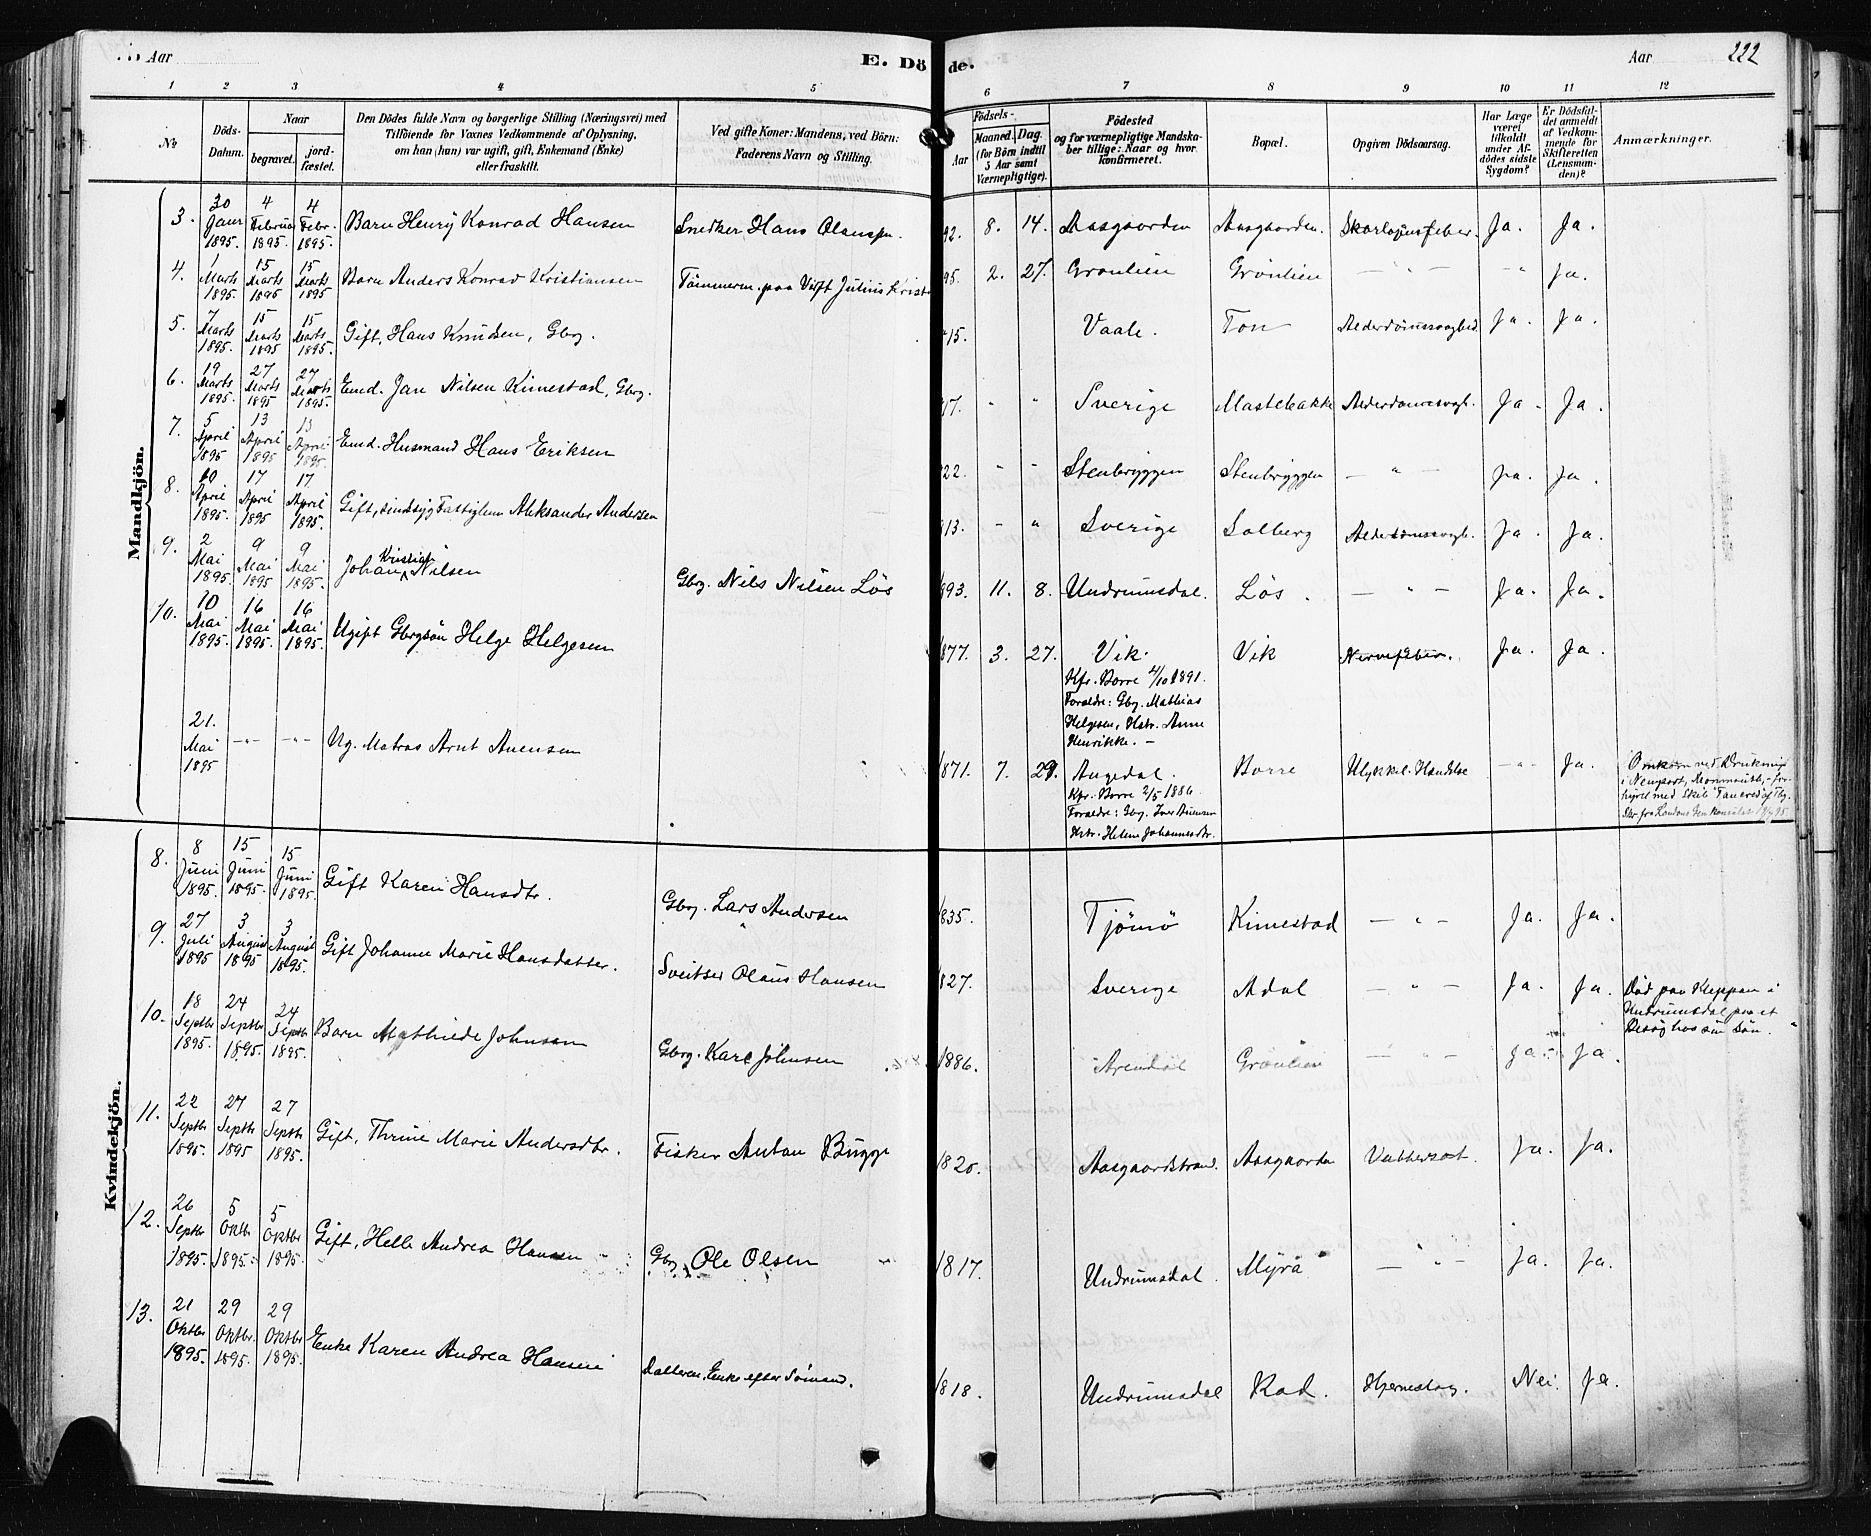 Aar
E. Dö de.
Aar 222
1 2 3 4 5 6 7 8 9 10 11 12
No
Döds-Datum.
Naar
begravet.
jordfæstet.
Den Dödes fulde Navn og borgerlige Stilling (Næringsvei) med
Tilföiende for Voxnes Vedkommende af Oplysning,
om han (hun) var ugift, gift, Enkemand (Enke)
eller fraskilt.
Ved gifte Koner: Mandens, ved Börn:
Faderens Navn og Stilling.
Födsels-
Aar
Maaned. Dag.
(for Börn indtil
5 Aar samt
Værnepligtige).
Födested
og for værnepligtige Mandska-
ber tillige: Naar og hvor
konfirmeret.
Bopæl.
Opgiven Dödsaarsag.
Har Læge
været
tilkaldt
under Af-
dödes sidste
Sygdom?
Er Dödsfal-
det anmeldt
af Vedkom-
mende for
Skifteretten
(Lensman-
den)?
Anmærkninger.
Mandkjön.
3. 30 Janr 1895. 4 Februar 1895. 4 Febr. 1895. Barn Henry Konrad Hansen Snedker Hans Olausen. 92. 8. 14. Aasgaarden Aasgaarden. Skarlagensfeber. Ja. Ja.
4. 1 Marts 1895. 15 Marts 1895 15 Marts 1895. Barn Anders Konrad Kristiansen Tömmerm. paa Værft Julius Krist 95. 2. 27. Grönlien Grönlien — " — - " Ja.
5. 7 Marts 1895. 15 Marts 1895 15 Marts 1895. Gift, Hans Knudsen, Gbrg. 15. Vaale. Ton Alderdomssvaghed Ja. Ja.
6. 19 Marts 1895. 27 Marts 1895 27 Marts 1895. Emd. Jan Nilsen Kimestad, Gbrg. 17. " " Sverige Mastebakke Alderdomssvagh. Ja. Ja.
7. 5 April 1895 13 April 1895 13 April 1895. Emd. Husmand Hans Eriksen 22. " " Stenbryggen Stenbryggen — " — Ja. Ja.
8. 10 April 1895. 17 April 1895 17 April 1895. Gift, sindssyg Fattiglem Aleksander Andersen 13. - " Sverige Solberg Alderdomssvagh. Ja. Ja.
9. 2 Mai 1895. 9 Mai 1895 9 Mai 1895. Johan Kristian Nilsen Gbrg. Nils Nilsen Lös 893. 11. 8. Undrumsdal. Lös. — " — Ja. Ja.
10. 10 Mai 1895. 16 Mai 1895. 16 Mai 1895. Ugift Gbrgsön Helge Helgesen 877. 3. 27. Vik. Vik Nervefeber. Ja. Ja.
Kfr. Borre 4/10 1891.
Foraldre: Gbg. Mathias
Helgesen, Hstr. Anne
Henrikke. —
21. Mai 1895 -"- -"- Ug. Matros Arnt Auensen 871. 7. 29. Augedal. Borre Ulykkel. Handelse -"- Ja. Omkom ved Drukning
i Newport, Monmouth, - for-
hyret med Skib Tancred af Tbg.
Kfr. Borre 2/5 1886.
Foraldre: Gbg. Iver Auensen
Hstr. Helene Johannesdtr.
Kvindekjön.
8. 8 Juni 1895. 15 Juni 1895. 15 Juni 1895. Gift Karen Hansdtr. Gbrg. Lars Andersen 835. Tjömö Kimestad — " — Ja. Ja.
9. 27 Juli 1895 3 August 1895 3 August 1895. Gift Johanne Marie Hansdatter. Sveitser Olaus Hansen 827. Sverige Adal — " — Ja. Ja. Död paa Kleppan i
Undrumsdal paa et
Besög hos sin Sön.
10. 18 Septbr 1895. 24 Septbr 1895. 24 Septbr 1895. Barn Mathilde Johnsen Gbrg. Karl Johnsen 1886. Arendal Grönlien " Ja. Ja.
11. 22 Septbr 1895. 27 Septbr 1895 27 Septbr 1895. Gift, Thrine Marie Andersdtr. Fisker Anton Bugge 1820. Aasgaardstrand Aasgaarden Vattersot. Ja. Ja.
12. 26 Septbr 1895. 5 Oktbr 1895. 5 Oktbr 1895. Gift, Helle Andrea Hansen Gbg. Ole Olsen 1817. Undrumsdal. Myra — " — Ja. Ja.
13. 21 Oktbr 1895. 29 Oktbr. 1895. 29 Oktbr 1895. Enke Karen Andrea Hansen Datteren, Enke efter Sömand. 1818. Undrumsdal Rod. Hjerneslag. Nei. Ja.